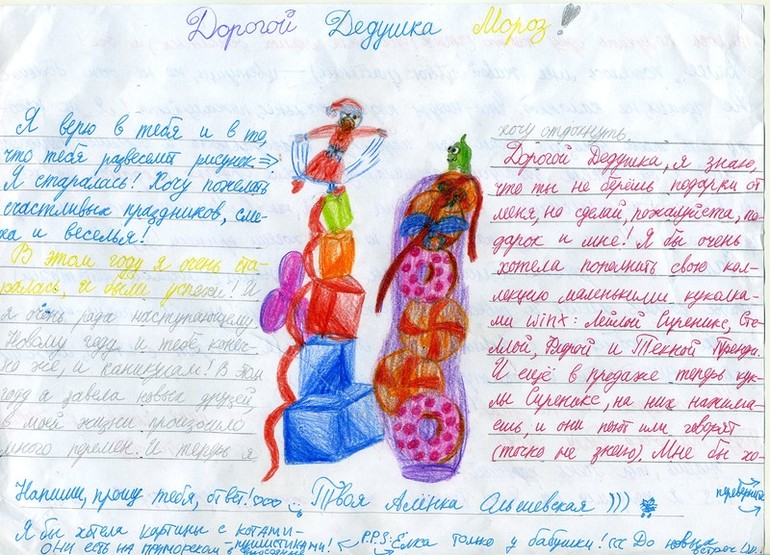 Дорогой Дедушка Мороз!
Я верю в тебя и в то,
что тебя развеселит рисунок⇒.
Я старалась! Хочу пожелать
счастливых праздников, сме-
ха и веселья!
В этом году я очень ста-
ралась, и были успехи! И
я очень рада наступающему
Новому году и тебе, конеч-
но же, и каникулам! В этом
году я завела новых друзей,
в моей жизни произошло
много перемен. И теперь я
хочу отдохнуть.
Дорогой Дедушка, я знаю,
что ты не берёшь подарки от
меня, но сделай, пожалуйста, по-
дарок и мне! Я бы очень
хотела пополнить свою кол-
лекцию маленькими куколка-
ми winx: Лейлой Сиреникс, Сте-
ллой, Флорой и Текной Тренди.
И ещё в продаже теперь кук-
лы Сиреникс, на них нажима-
ешь, и они поют или говорят
(точно не знаю). Мне бы хо-
Напиши, прошу тебя, ответ!
Твоя Алёнка Альшевская )))
переверните
Я бы хотела картины с котами-
они есть на Приморском в
P.P.S: Ёлка только у бабушки! До новых